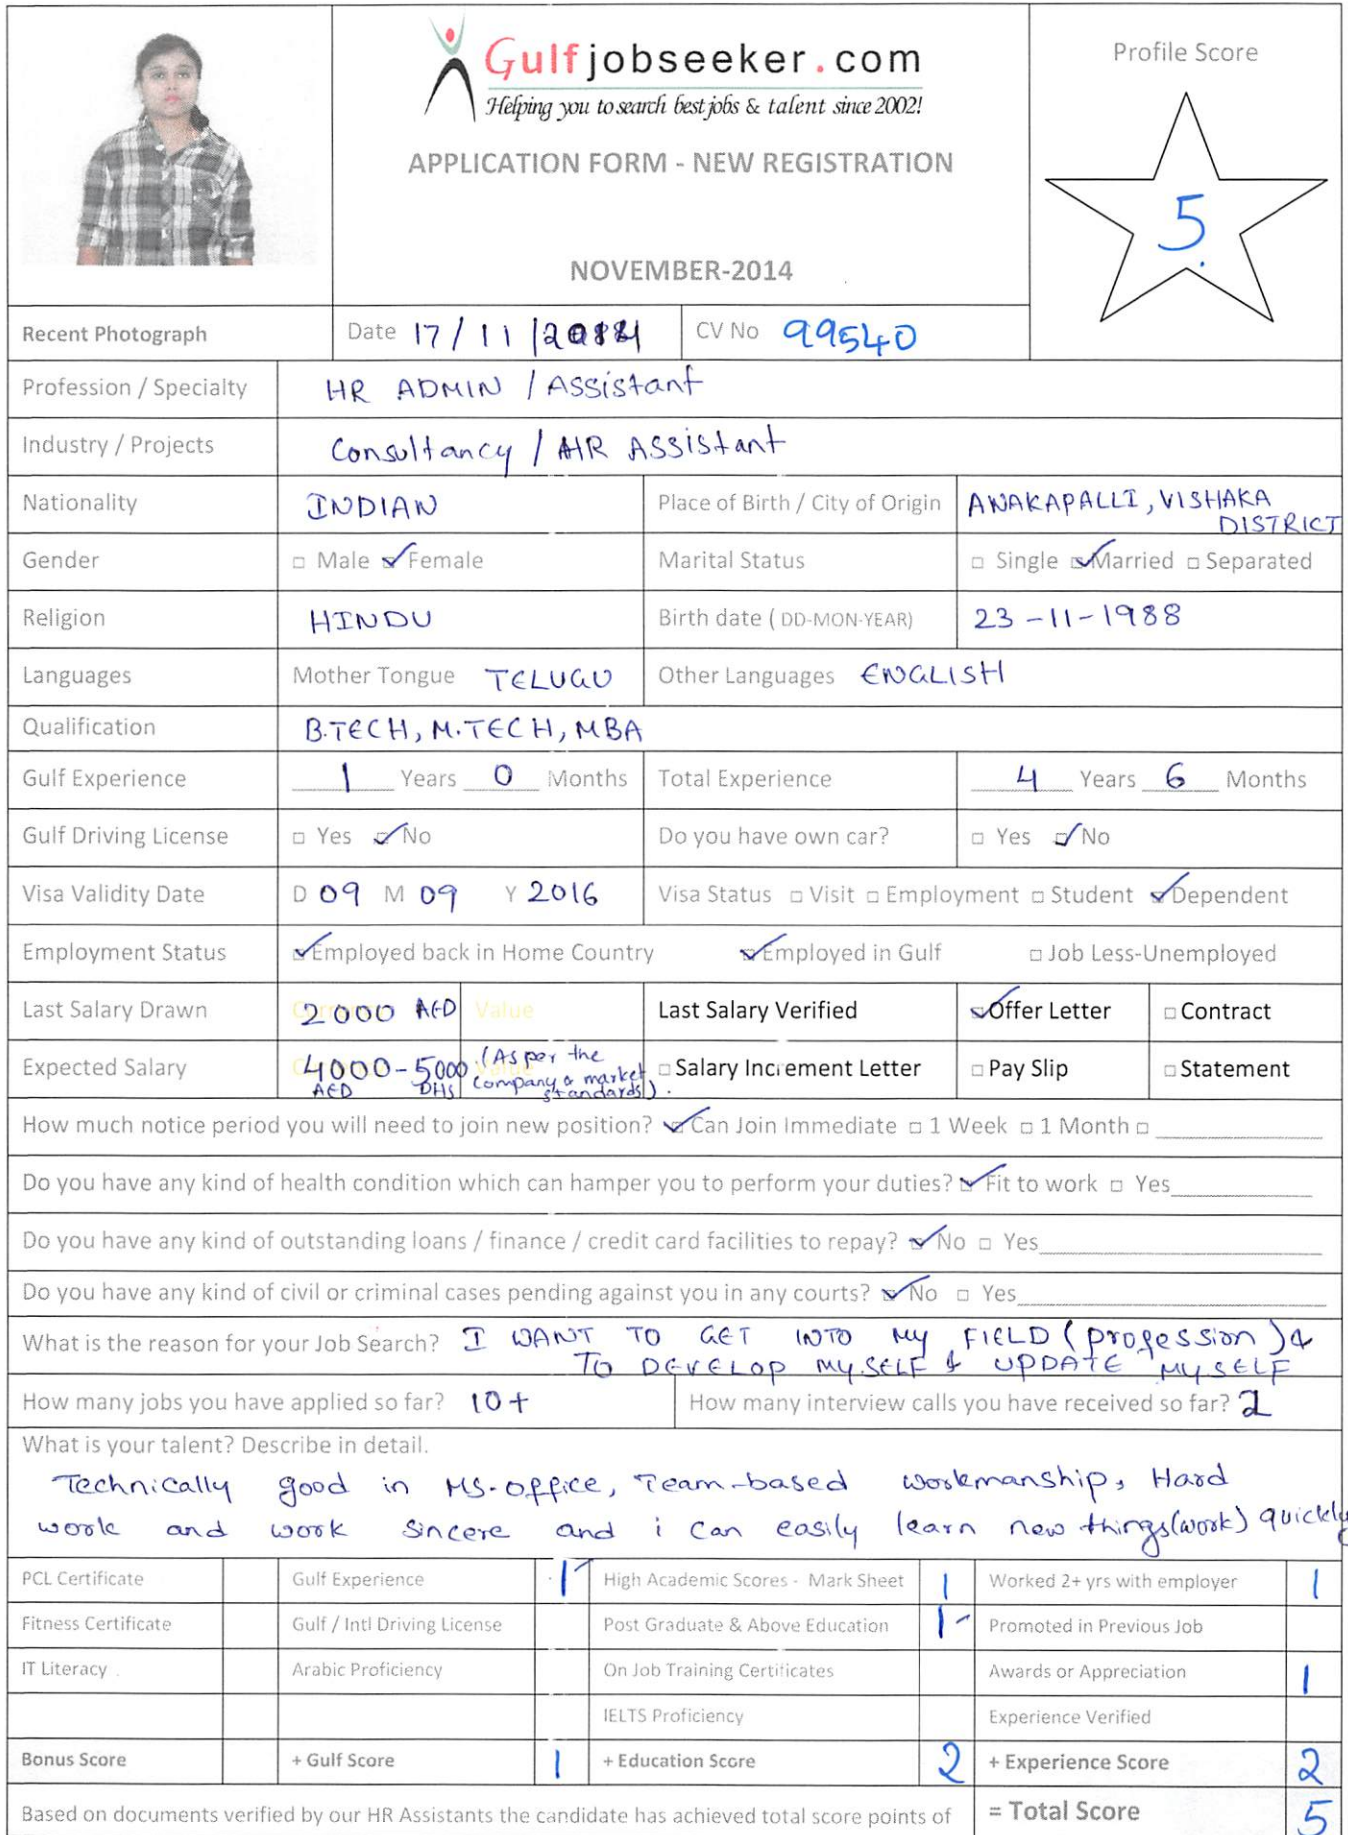 Gulfjobseeker.com
Helping you to search best jobs & talent since 2002!
Profile Score
APPLICATION FORM - NEW REGISTRATION
5
NOVEMBER-2014
Recent Photograph Date 17/11/2014 CV No 99540
Profession / Specialty HR ADMIN / Assistant
Industry / Projects Consultancy / HR Assistant
Nationality INDIAN Place of Birth / City of Origin ANAKAPALLI, VISHAKA
DISTRICT
Gender □ Male ☑ Female Marital Status □ Single ☑ Married □ Separated
Religion HINDU Birth date ( DD-MON-YEAR) 23-11-1988
Languages Mother Tongue TELUGU Other Languages ENGLISH
Qualification B.TECH, M.TECH, MBA
Gulf Experience 1 Years 0 Months Total Experience 4 Years 6 Months
Gulf Driving License □ Yes ☑ No Do you have own car? □ Yes ☑ No
Visa Validity Date D 09 M 09 Y 2016 Visa Status □ Visit □ Employment □ Student ☑ Dependent
Employment Status ☑ Employed back in Home Country ☑ Employed in Gulf □ Job Less-Unemployed
Last Salary Drawn 2000 AED Value Last Salary Verified ☑ Offer Letter □ Contract
Expected Salary 4000-5000 (As per the □ Salary Increment Letter □ Pay Slip □ Statement
AED DHS company & market
standards).
How much notice period you will need to join new position? ☑ Can Join Immediate □ 1 Week □ 1 Month □
Do you have any kind of health condition which can hamper you to perform your duties? ☑ Fit to work □ Yes
Do you have any kind of outstanding loans / finance / credit card facilities to repay? ☑ No □ Yes
Do you have any kind of civil or criminal cases pending against you in any courts? ☑ No □ Yes
What is the reason for your Job Search? I WANT TO GET INTO My FIELD (profession) &
TO DEVELOP MYSELF & UPDATE MYSELF
How many jobs you have applied so far? 10+ How many interview calls you have received so far? 2
What is your talent? Describe in detail.
Technically good in MS-office, Team-based workmanship, Hard
work and work sincere and i can easily learn new things(work) quickly
PCL Certificate Gulf Experience 1 High Academic Scores - Mark Sheet 1 Worked 2+ yrs with employer 1
Fitness Certificate Gulf / Intl Driving License Post Graduate & Above Education 1 Promoted in Previous Job
IT Literacy Arabic Proficiency On Job Training Certificates Awards or Appreciation 1
IELTS Proficiency Experience Verified
Bonus Score + Gulf Score 1 + Education Score 2 + Experience Score 2
Based on documents verified by our HR Assistants the candidate has achieved total score points of = Total Score 5